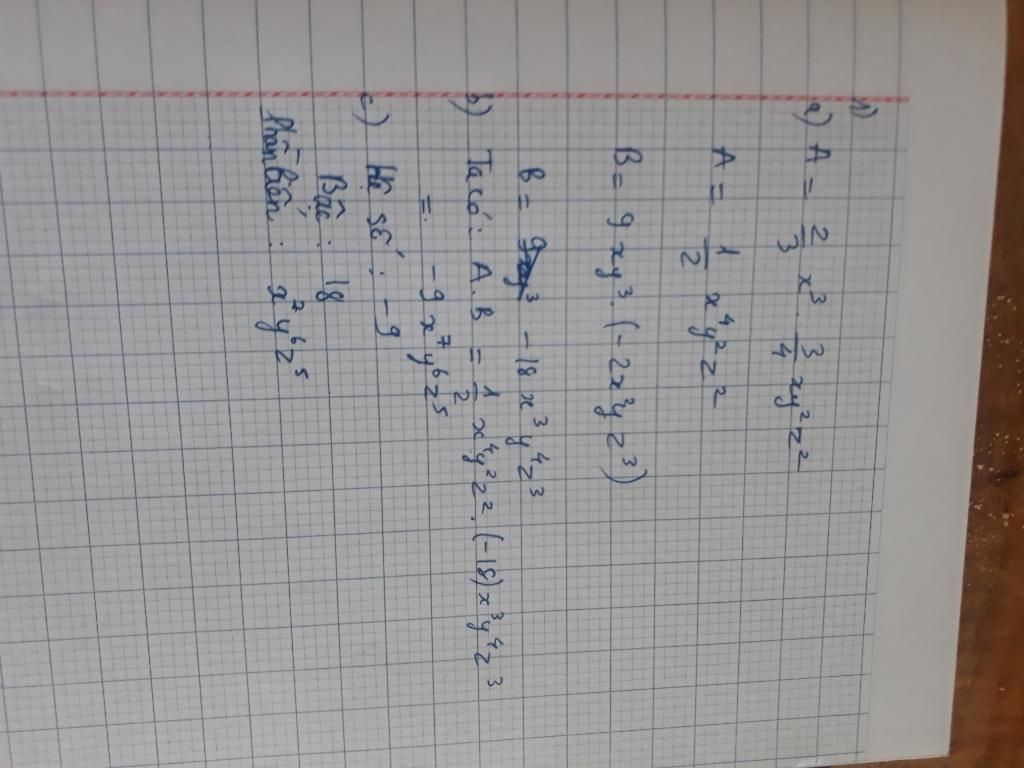 1)
a) A = 2/3 x³ . 3/4 xy²z²
A = 1/2 x⁴y²z²
B = 9xy³.(-2x²yz³)
B = -18x³y⁴z³
b) Ta có: A.B = 1/2 x⁴y²z².(-18)x³y⁴z³
= -9x⁷y⁶z⁵
c) Hệ số: -9
Bậc: 18
Phần biến: x⁷y⁶z⁵